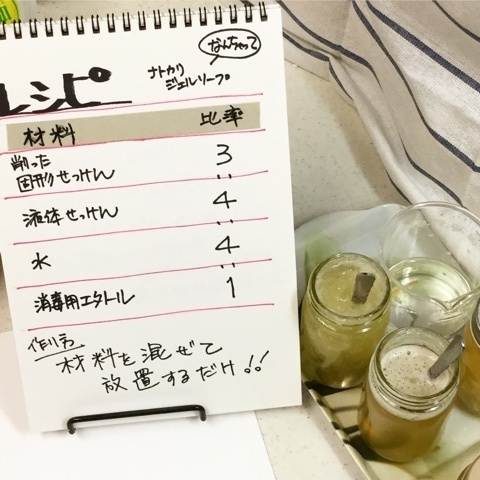 なんちゃって
レシピ
ナトカリ
ジェルソープ
材料 比率
削った
固形せっけん 3
:
液体せっけん 4
:
水 4
:
消毒用エタノール 1
作り方
材料を混ぜて
放置するだけ!!